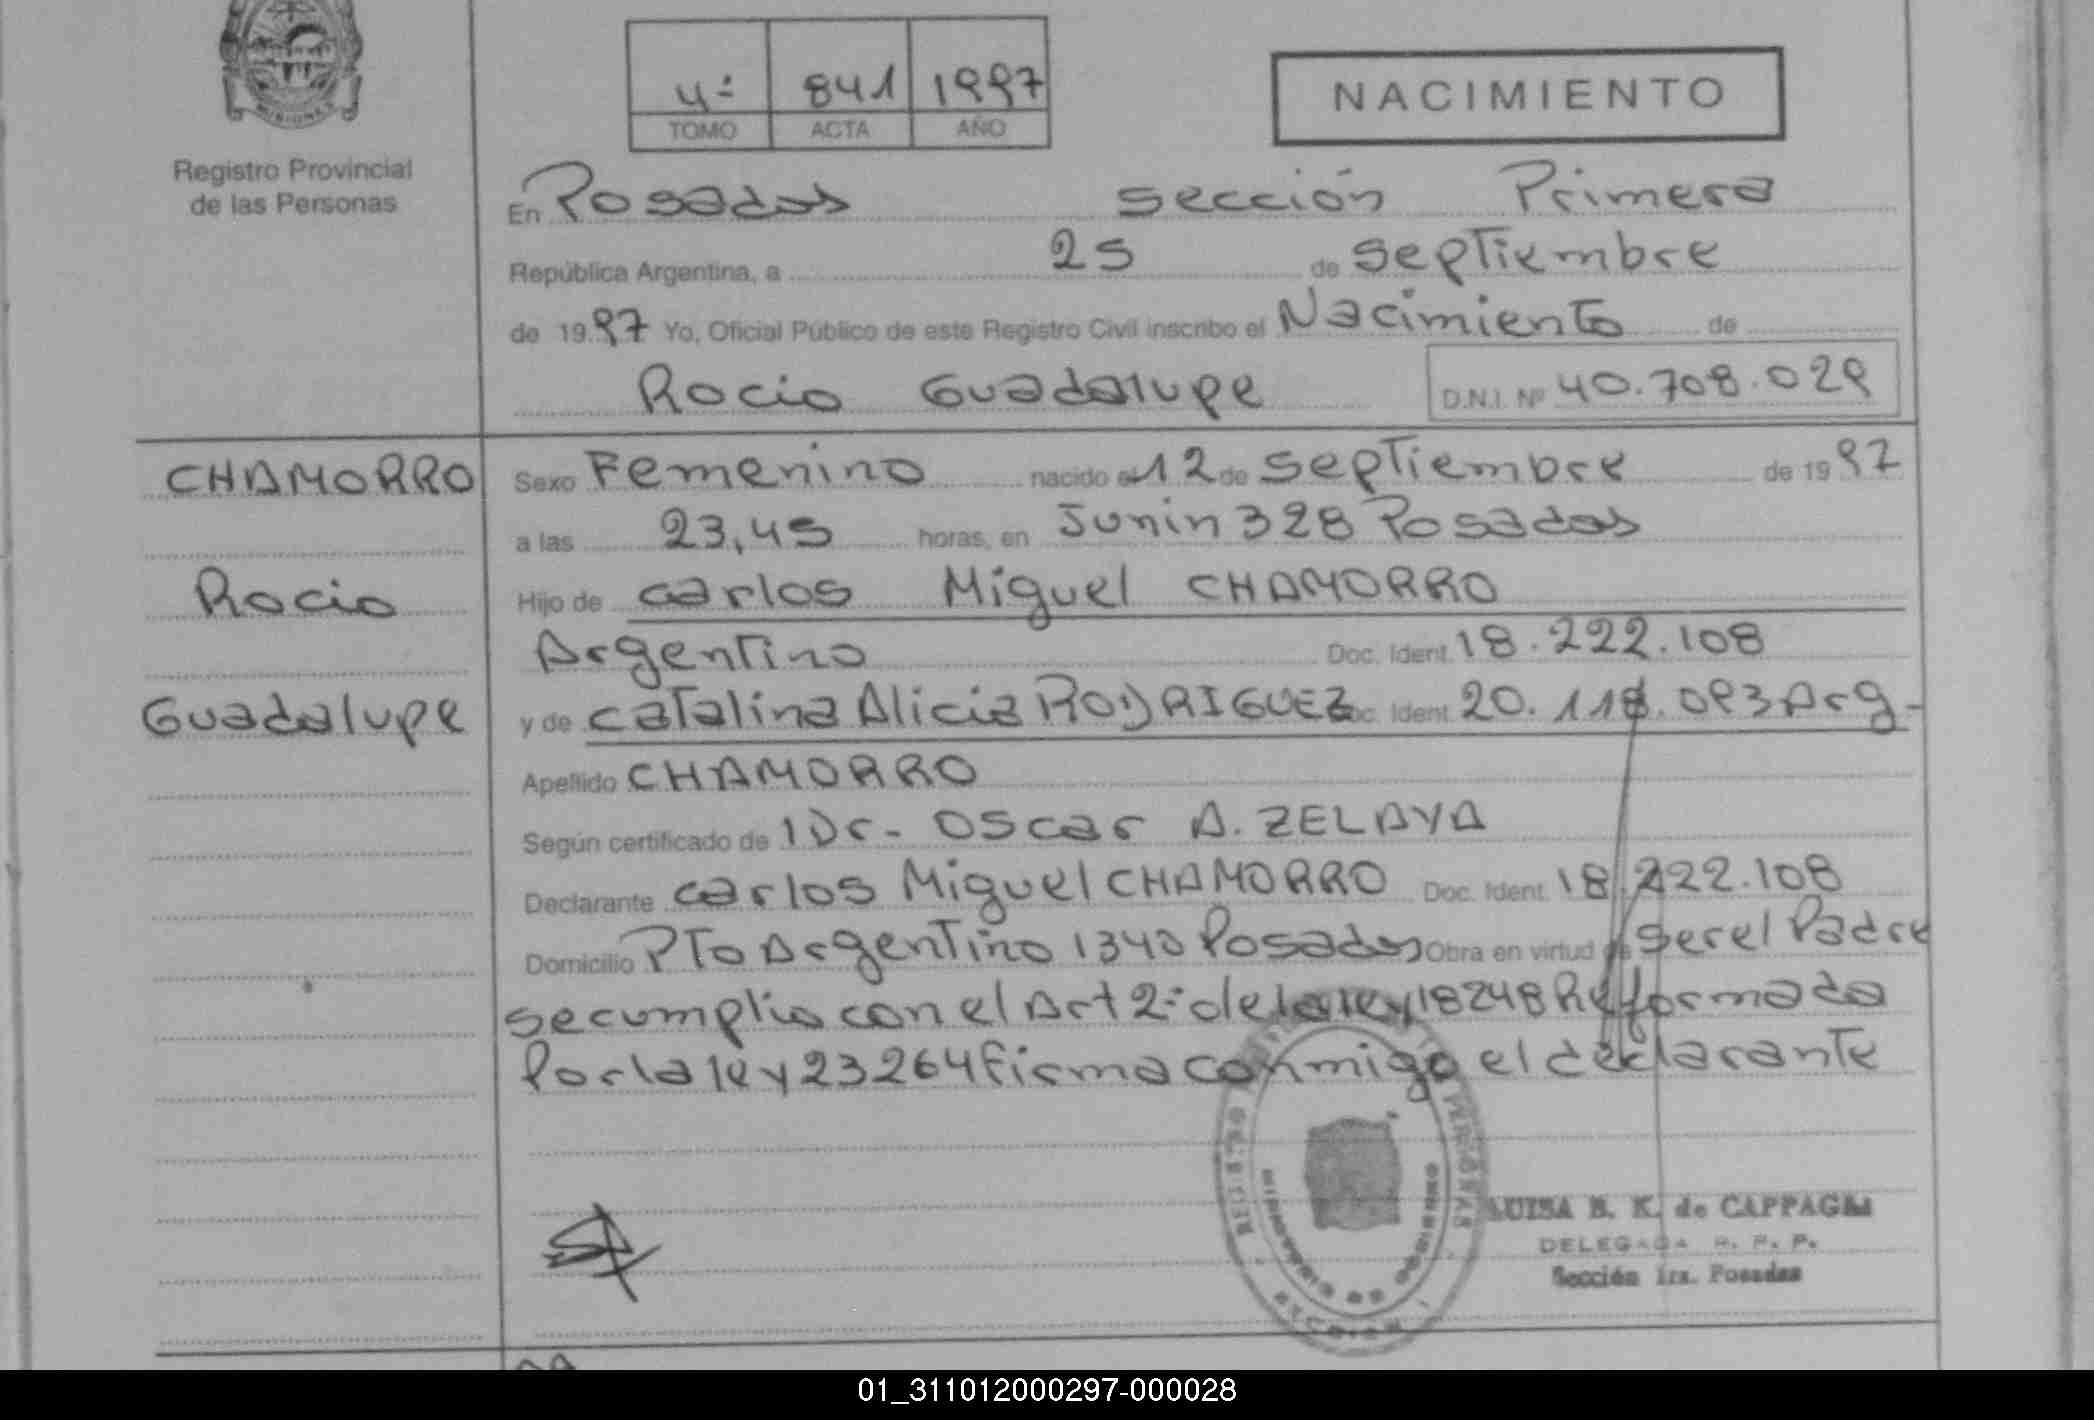 MISIONES
Registro Provincial
de las Personas
4º 841 1997
TOMO ACTA AÑO
NACIMIENTO
En Posadas sección Primera
República Argentina, a 25 de septiembre
de 1997 Yo, Oficial Público de este Registro Civil inscribo el Nacimiento de
Rocio Guadalupe D.N.I. Nº 40.708.029
CHAMORRO
Rocio
Guadalupe
Sexo Femenino nacido el 12 de septiembre de 1997
a las 23,45 horas, en Junin 328 Posadas
Hijo de carlos Miguel CHAMORRO
Argentino Doc. Ident. 18.222.108
y de catalina Alicia RODRIGUEZ Doc. Ident. 20.118.093 Arg-
Apellido CHAMORRO
Según certificado de 1 Dr- Oscar A. ZELAYA
Declarante carlos Miguel CHAMORRO Doc. Ident. 18.222.108
Domicilio Pto Argentino 1340 Posadas Obra en virtud de ser el Padre
se cumplio con el Art 2º de la ley 18248 Reformada
Por la ley 23264 firma conmigo el declarante
LUISA B. K. de CAPPAGLI
DELEGADA R. P. P.
Sección 1ra. Posadas
01_311012000297-000028